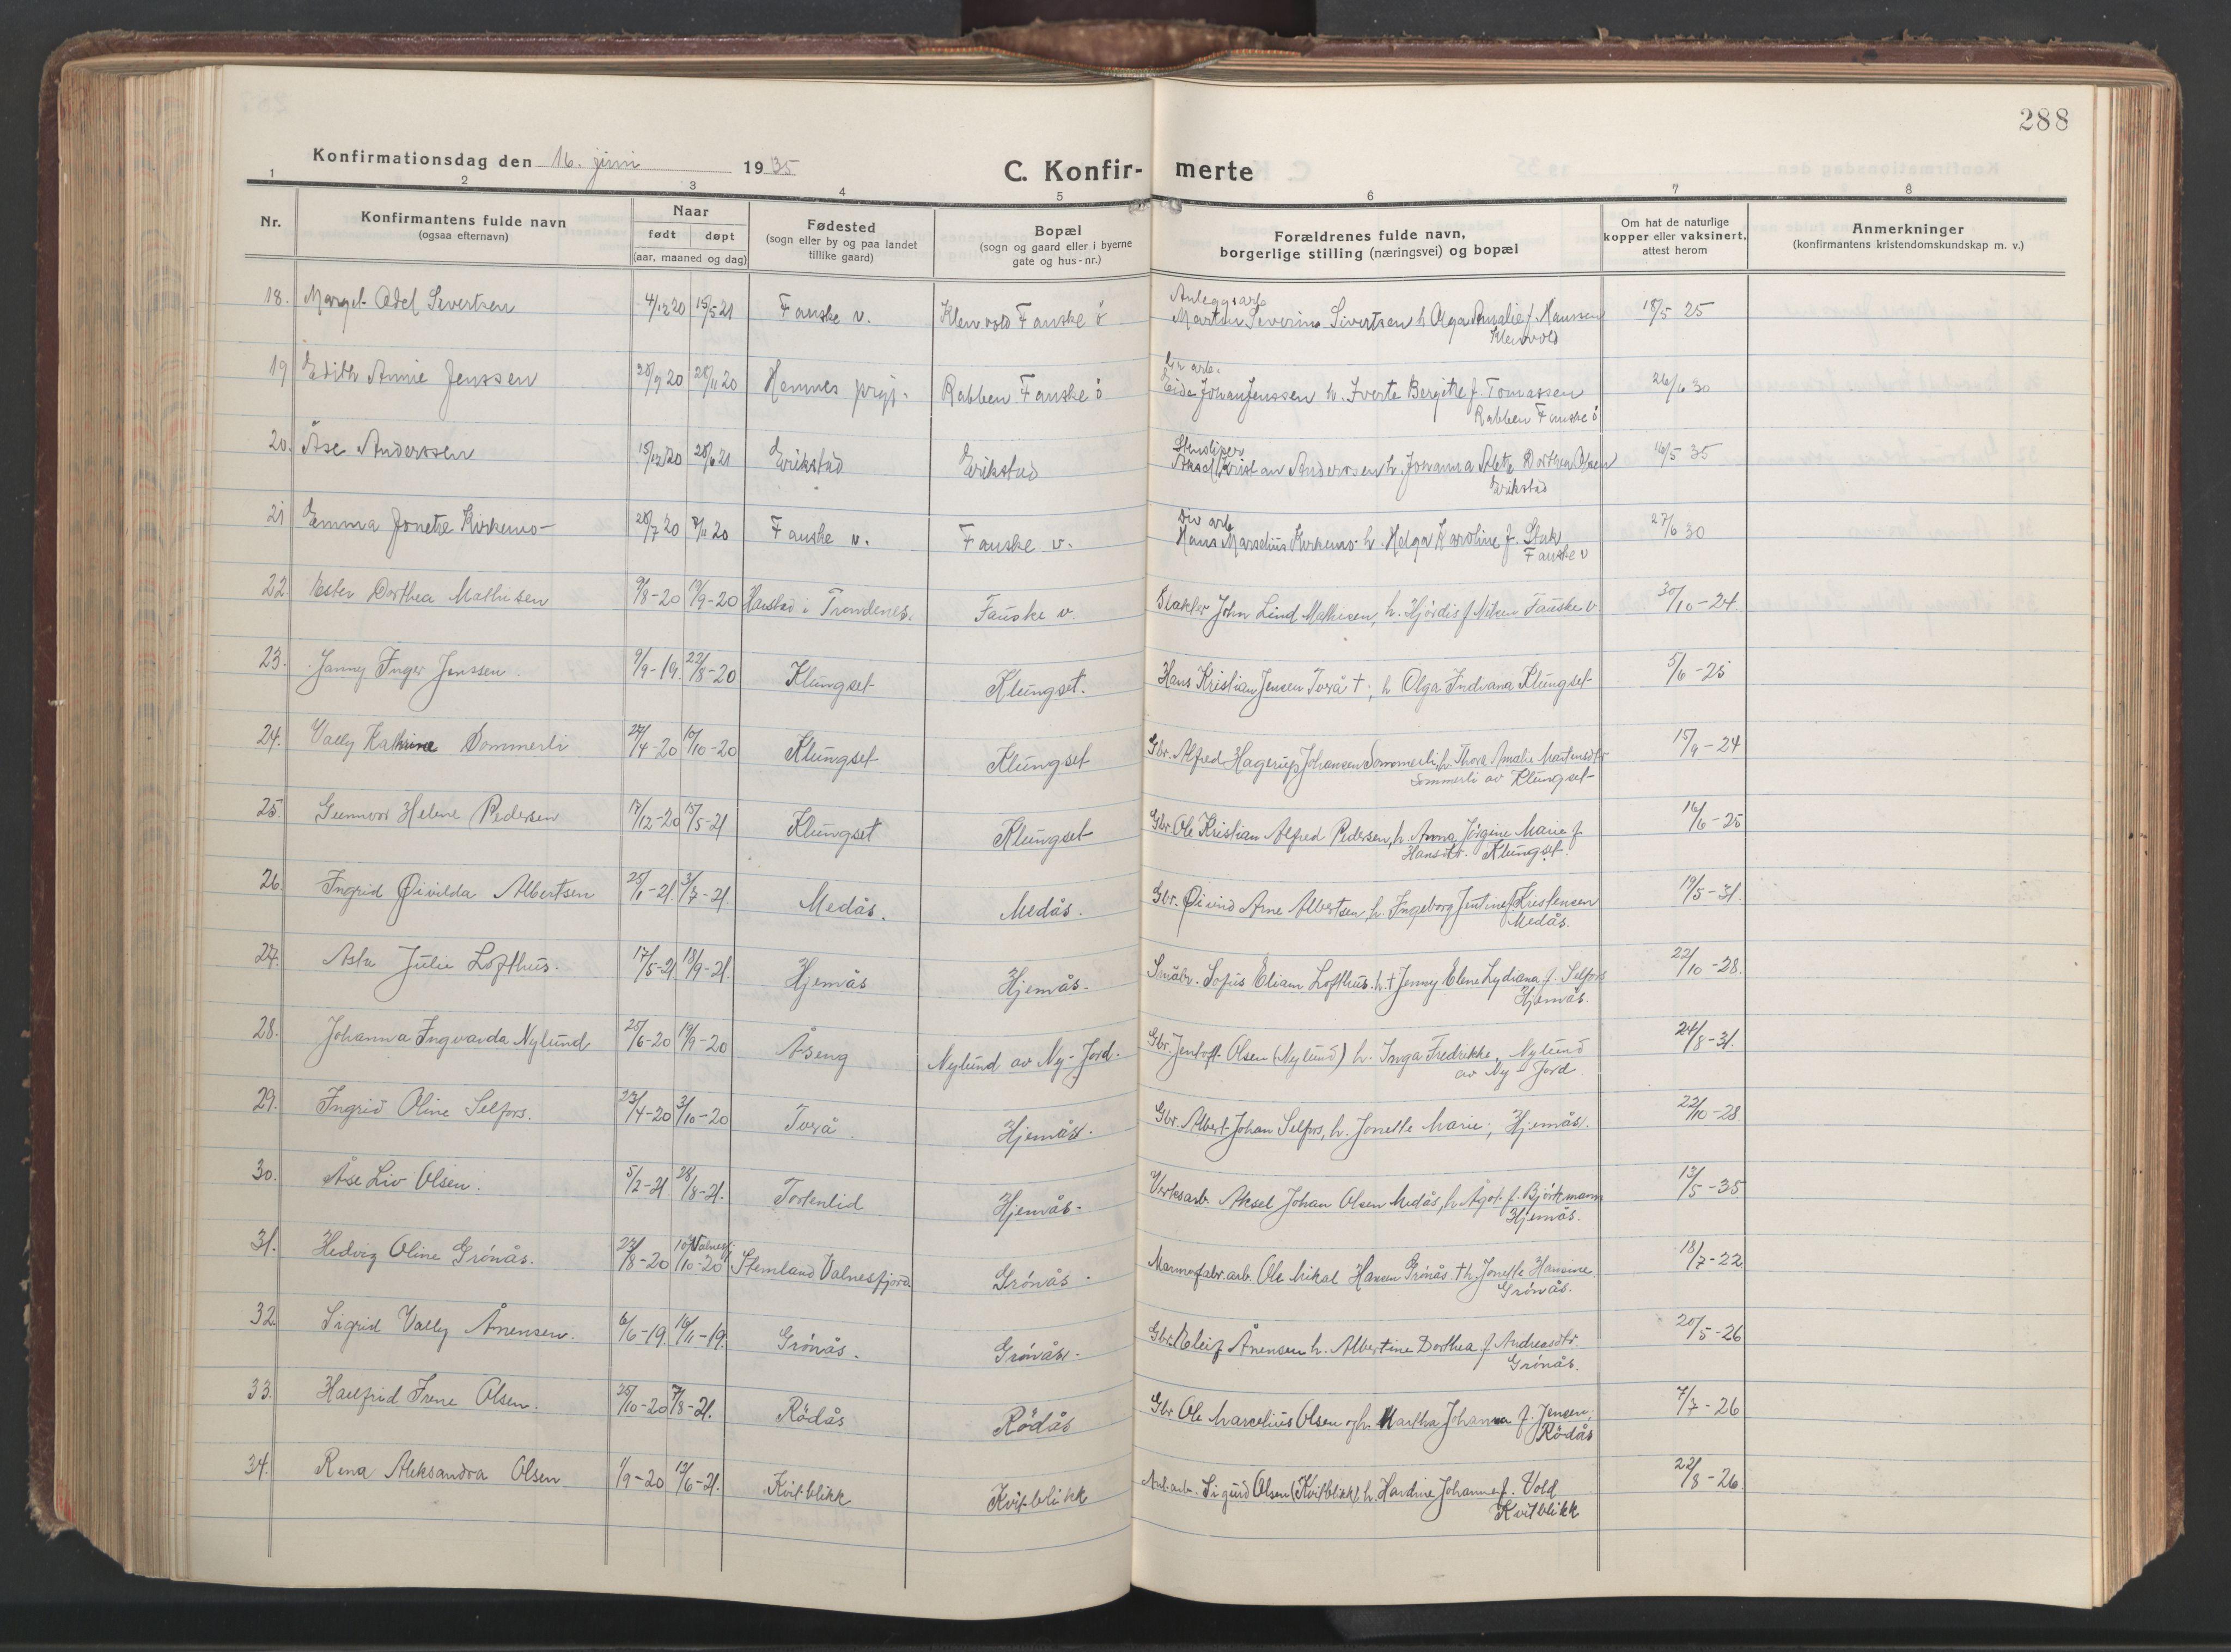 288
Konfirmationsdag den 16. juni 1935
C. Konfir- merte
1 2 3 4 5 6 7 8
Nr.
Konfirmantens fulde navn
(ogsaa efternavn)
Naar
født døpt
(aar, maaned og dag)
Fødested
(sogn eller by og paa landet
tillike gaard)
Bopæl
(sogn og gaard eller i byerne
gate og hus-nr.)
Forældrenes fulde navn,
borgerlige stilling (næringsvei) og bopæl
Om hat de naturlige
kopper eller vaksinert,
attest herom
Anmerkninger
(konfirmantens kristendomskundskap m. v.)
Anleggsarb
18. Margit Odel Sivertsen 4/12 20 15/5 21 Fauske v. Klenvold Fauske ö Martin Severin Sivertsen h Olga Amalie f Hanssen 18/5 25
Klenvold
Gr arb.
19 Edith Annie Jenssen 28/9 20 28/11 20 Hemnes prgj. Rabben Fauske ö Johan Jenssen h. Iverte Bergitte f. Tomassen 26/6 30
Rabben Fauske ö
Stensliper
20. Åse Anderssen 15/12 20 28/6 21 Erikstad Erikstad Aksel Kristian Anderssen h. Johanna Alete Dorthea Olsen 16/5 35
Erikstad
Div arb
21 Emma Jonette Kirkemo 28/7 20 7/11 20 Fauske v. Fauske v. Hans Marselius Kirkemo h. Helga Karoline f. 27/6 30
Fauske v
22 Ester Dorthea Mathisen 9/8-20 19/9-20 Harstad i Trondenes. Fauske v. John Lind Mathisen, h. Hjördis f Nilsen Fauske v 30/10-24.
23. Janny Inger Jenssen. 9/9-19. 22/8-20 Klungset Klungset. Hans Kristian Jensen Tverå †, h Olga Indiana Klungset 5/6-25
24. Vally Kathrine Sommerli 27/4-20 10/10-20 Klungset Klungset Gbr. Alfred Hagerup Johansen Sommerli, h. Thora Amalie Martensdtr 15/9-24
Sommerli av Klungset
25. Gunnvor Helene Pedersen 17/12-20 15/5-21 Klungset Klungset Gbr Ole Kristian Alfred Pedersen, h. Anna Jörgine Marie f. 16/6-25
Hansdtr. Klungset.
26. Ingrid Øivilda Albertsen 25/1-21. 3/7-21. Medås. Medås. Gbr. Øivind Arne Albertsen, h. Ingeborg Jentine f Kristensen 19/5-31.
Medås.
27. Asta Julie Lofthus. 17/5-21 18/9-21. Hjemås Hjemås. Småbr. Sofus Eliam Lofthus. h. † Jenny Elene Lydiana f. Selfors 22/10-28.
Hjemås.
28. Johanna Ingvarda Nylund 25/6-20 19/9-20 Åseng Nylund av Ny-Jord. Gbr. Jentoft Olsen (Nylund) h. Inga Fredrikke, Nylund 24/8-31.
av Ny-Jord.
29. Ingrid Oline Selfors. 23/4-20 3/10-20 Tverå. Hjemås. Gbr. Albert Johan Selfors, h. Jonette Marie, Hjemås. 22/10-28
30. Åse Liv Olsen. 5/2-21 28/8-21. Tortenlid Hjemås. Verksarb. Aksel Johan Olsen Medås, h. Ågot f. Björkmann 13/5-35
Hjemås.
31. Hedvig Oline Grönås. 23/8-20 10/10-20 Valnesfj. Stemland Valnesfjord Grönås. Marmorfabr.arb. Ole Mikal Hansen Grönås. † h. Jonette Hansine. 18/7-22
Grönås.
32. Sigrid Vally Ånensen. 6/6-19. 16/11-19. Grönås. Grönås. Gbr. Eleif Ånensen h. Albertine Dorthea f. Andreasdtr. 20/5-26
Grönås.
33. Hallfrid Irene Olsen. 25/10-20 7/8-21. Rödås Rödås Gbr Ole Marcelius Olsen og h. Martha Johanna f. Jensen. 7/7-26
Rödås
34. Rena Aleksandra Olsen 1/9-20 12/6-21. Kvitblikk Kvitblikk Anl.arb. Sigurd Olsen (Kvitblikk) h. Hardine Johanne f. Vold 22/8-26.
Kvitblikk